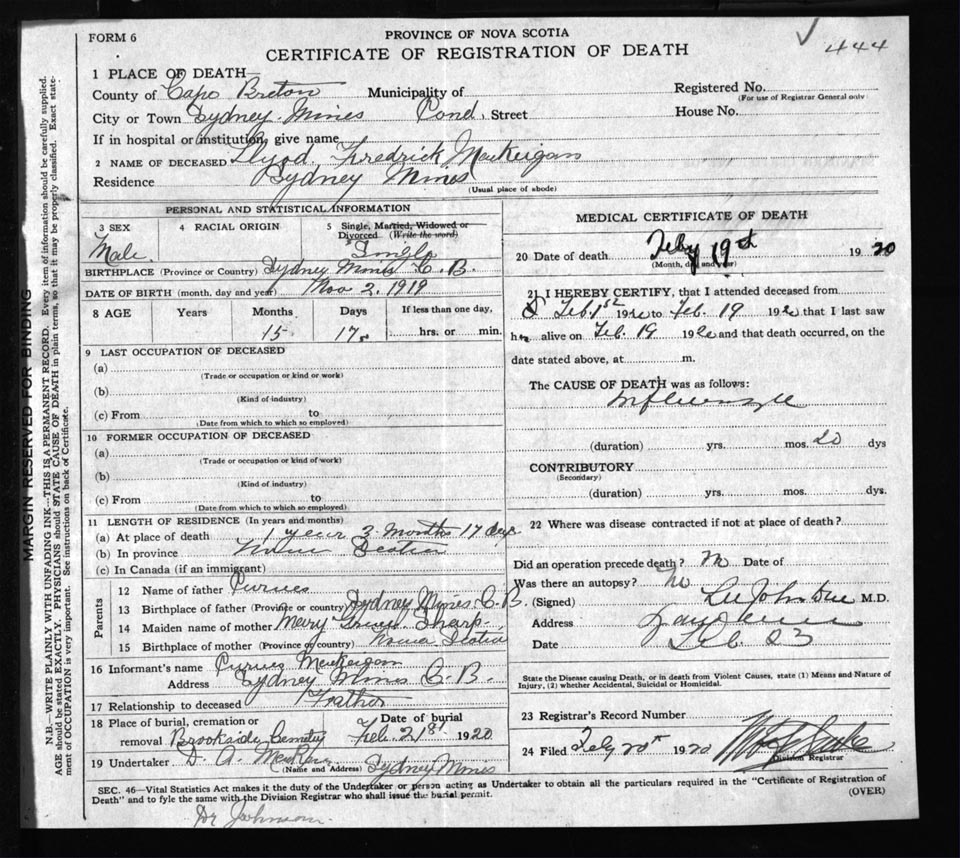 FORM 6
PROVINCE OF NOVA SCOTIA
CERTIFICATE OF REGISTRATION OF DEATH
444
1 PLACE OF DEATH—
County of Cape Breton Municipality of
Registered No.
(For use of Registrar General only)
City or Town Sydney Mines Pond Street House No.
If in hospital or institution, give name
2 NAME OF DECEASED Llyod Fredrick MacKeigan
Residence Sydney Mines
(Usual place of abode)
PERSONAL AND STATISTICAL INFORMATION
3 SEX 4 RACIAL ORIGIN 5 Single, Married, Widowed or Divorced (Write the word)
Male Single
BIRTHPLACE (Province or Country) Sydney Mines C. B.
DATE OF BIRTH (month, day and year) Nov 2. 1919
8 AGE Years Months Days If less than one day,
15 17 hrs. or min.
9 LAST OCCUPATION OF DECEASED
(a)
(Trade or occupation or kind or work)
(b)
(Kind of industry)
(c) From to
(Date from which to which so employed)
10 FORMER OCCUPATION OF DECEASED
(a)
(Trade or occupation or kind of work)
(b)
(Kind of industry)
(c) From to
(Date from which to which so employed)
11 LENGTH OF RESIDENCE (In years and months)
(a) At place of death 1 year 3 Months 17 days
(b) In province Nova Scotia
(c) In Canada (if an immigrant)
Parents
12 Name of father Purves
13 Birthplace of father (Province or country) Sydney Mines C. B.
14 Maiden name of mother Mary Sharp
15 Birthplace of mother (Province or country) Nova Scotia
16 Informant's name Purves MacKeigan
Address Sydney Mines C. B.
17 Relationship to deceased Father
18 Place of burial, cremation or removal Brookside Cemetery
Date of burial Feb 21st 1920
19 Undertaker D. A.
(Name and Address) Sydney Mines
MEDICAL CERTIFICATE OF DEATH
20 Date of death Feby 19th 1920
(Month, day and year)
21 I HEREBY CERTIFY, that I attended deceased from
Feb. 1st 1920 to Feb. 19 1920 that I last saw
h alive on Feb. 19 1920 and that death occurred, on the
date stated above, at m.
The CAUSE OF DEATH was as follows:
Influenza
(duration) yrs. mos. 20 dys
CONTRIBUTORY
(Secondary)
(duration) yrs. mos. dys.
22 Where was disease contracted if not at place of death?
Did an operation precede death? No Date of
Was there an autopsy? No
(Signed) M.D.
Address
Date Feb 23
State the Disease causing Death, or in death from Violent Causes, state (1) Means and Nature of
Injury, (2) whether Accidental, Suicidal or Homicidal.
23 Registrar's Record Number
24 Filed Feby 20th 1920
Division Registrar
SEC. 46—Vital Statistics Act makes it the duty of the Undertaker or person acting as Undertaker to obtain all the particulars required in the "Certificate of Registration of
Death" and to fyle the same with the Division Registrar who shall issue the burial permit.
(OVER)
Dr Johnson
MARGIN RESERVED FOR BINDING
N.B.—WRITE PLAINLY WITH UNFADING INK—THIS IS A PERMANENT RECORD. Every item of information should be carefully supplied.
AGE should be stated EXACTLY. PHYSICIANS should STATE CAUSE OF DEATH in plain terms, so that it may be properly classified. Exact statement of OCCUPATION is very important. See instructions on back of Certificate.